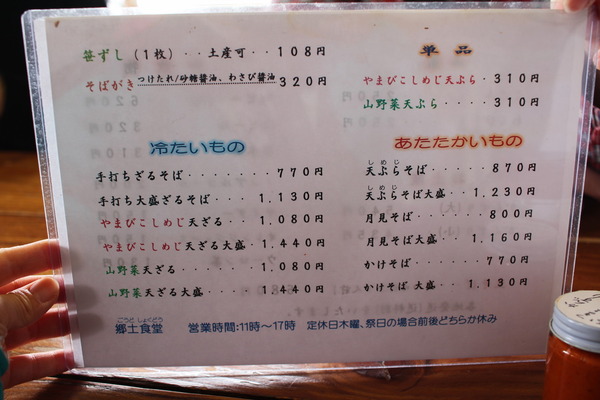 笹ずし（1枚）‥土産可‥108円
そばがき つけたれ/砂糖醤油、わさび醤油 320円
単品
やまびこしめじ天ぷら・310円
山野菜天ぷら・・・・310円
冷たいもの
手打ちざるそば・・・・・・770円
手打ち大盛ざるそば・・・1,130円
やまびこしめじ天ざる・・・1,080円
やまびこしめじ天ざる大盛・1,440円
山野菜天ざる・・・・・・・1,080円
山野菜天ざる大盛・・・・・1,440円
あたたかいもの
しめじ
天ぷらそば・・・・・・870円
しめじ
天ぷらそば大盛・・・1,230円
月見そば・・・・・・・800円
月見そば大盛・・・・1,160円
かけそば・・・・・・・770円
かけそば 大盛・・・・1,130円
ごうど しょくどう
郷土食堂 営業時間:11時〜17時 定休日木曜、祭日の場合前後どちらか休み